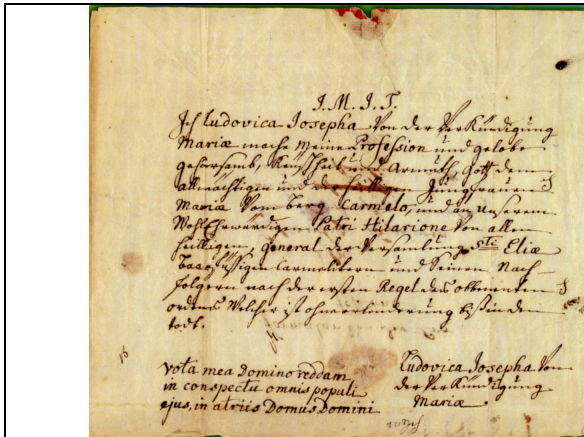 J. M. J. T.
Ich Ludovica Josepha Von der Verkündigung
Mariæ mache meine Profession und gelobe
gehorsamb, Keuschheit und Armuth, Gott dem
allmächtigen und der heiligen Jungfrauen
Maria Vom berg Carmelo, und an unserem
WohlEhrwürdigen Patri Hilarione Von allen
heiligen, general der Versamlung Sti Eliæ
Carmelitern und seinen Nach-
folgern nach der ersten Regel des obbenenten
ordens Welcher ist ohne bis in den
todt.
Vota mea Domino reddam
in conspectu omnis populi
ejus, in atriis Domus Domini
Ludovica Josepha Von
der Verkündigung
Mariæ